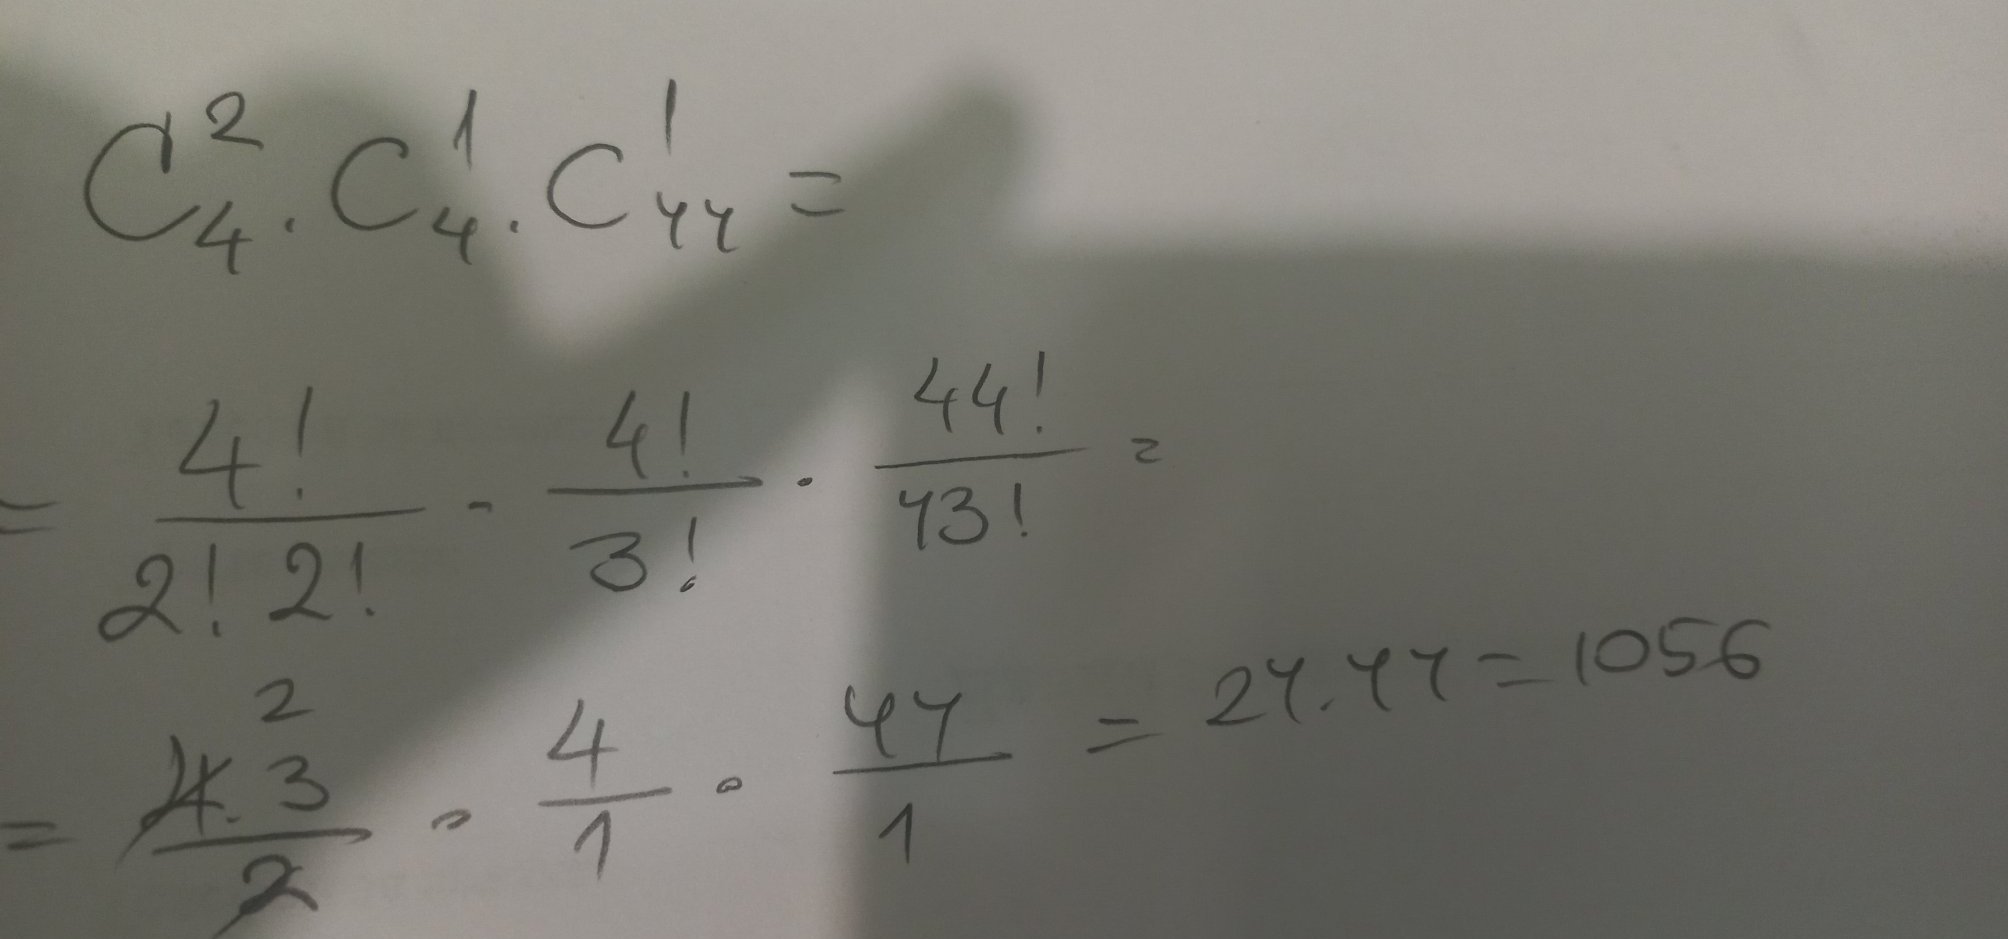 C₄² · C₄¹ · C₄₄¹ =
= 4!/(2! 2!) · 4!/3! · 44!/43! =
= (4·3)/2 · 4/1 · 44/1 = 24·44 = 1056